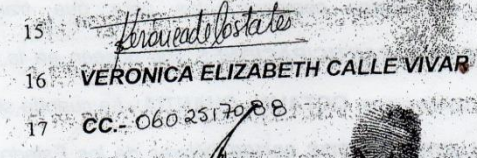 15
16 VERONICA ELIZABETH CALLE VIVAR
17 CC.- 0602517088